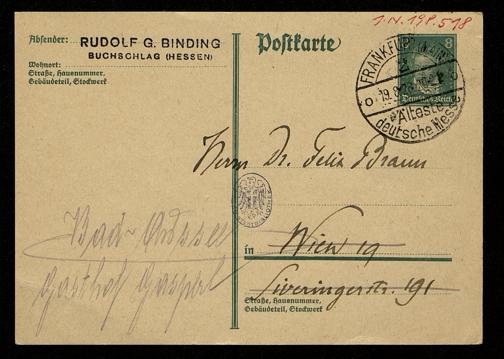 J.N. 198.518
Absender: RUDOLF G. BINDING
BUCHSCHLAG (HESSEN)
Wohnort:
Straße, Hausnummer,
Gebäudeteil, Stockwerk
Postkarte
8
Deutsches Reich
FRANKFURT
Älteste
deutsche Messe
Herrn Dr. Felix Braun
in Wien 19
Sieveringerstr. 191
Straße, Hausnummer,
Gebäudeteil, Stockwerk
Bad-Aussee
Gasthof Gasperl